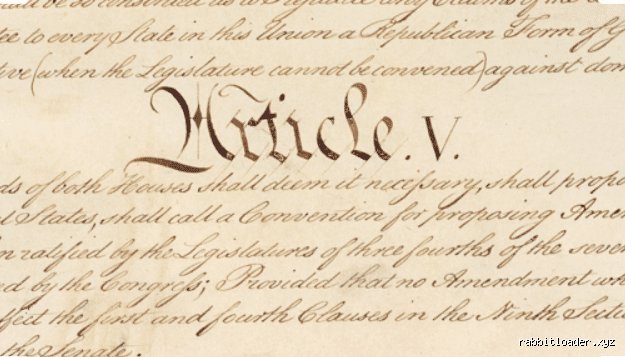 be so construed as to Prejudice any Claims of the
tee to every State in this Union a Republican Form of G
tive (when the Legislature cannot be convened) against dom
Article. V.
ds of both Houses shall deem it neceſsary, shall propo
l States, shall call a Convention for proposing Amen
n ratified by the Legislatures of three fourths of the sever
ed by the Congreſs; Provided that no Amendment wh
fect the first and fourth Clauses in the Ninth Secti
the Senate.
rabbitloader.xyz